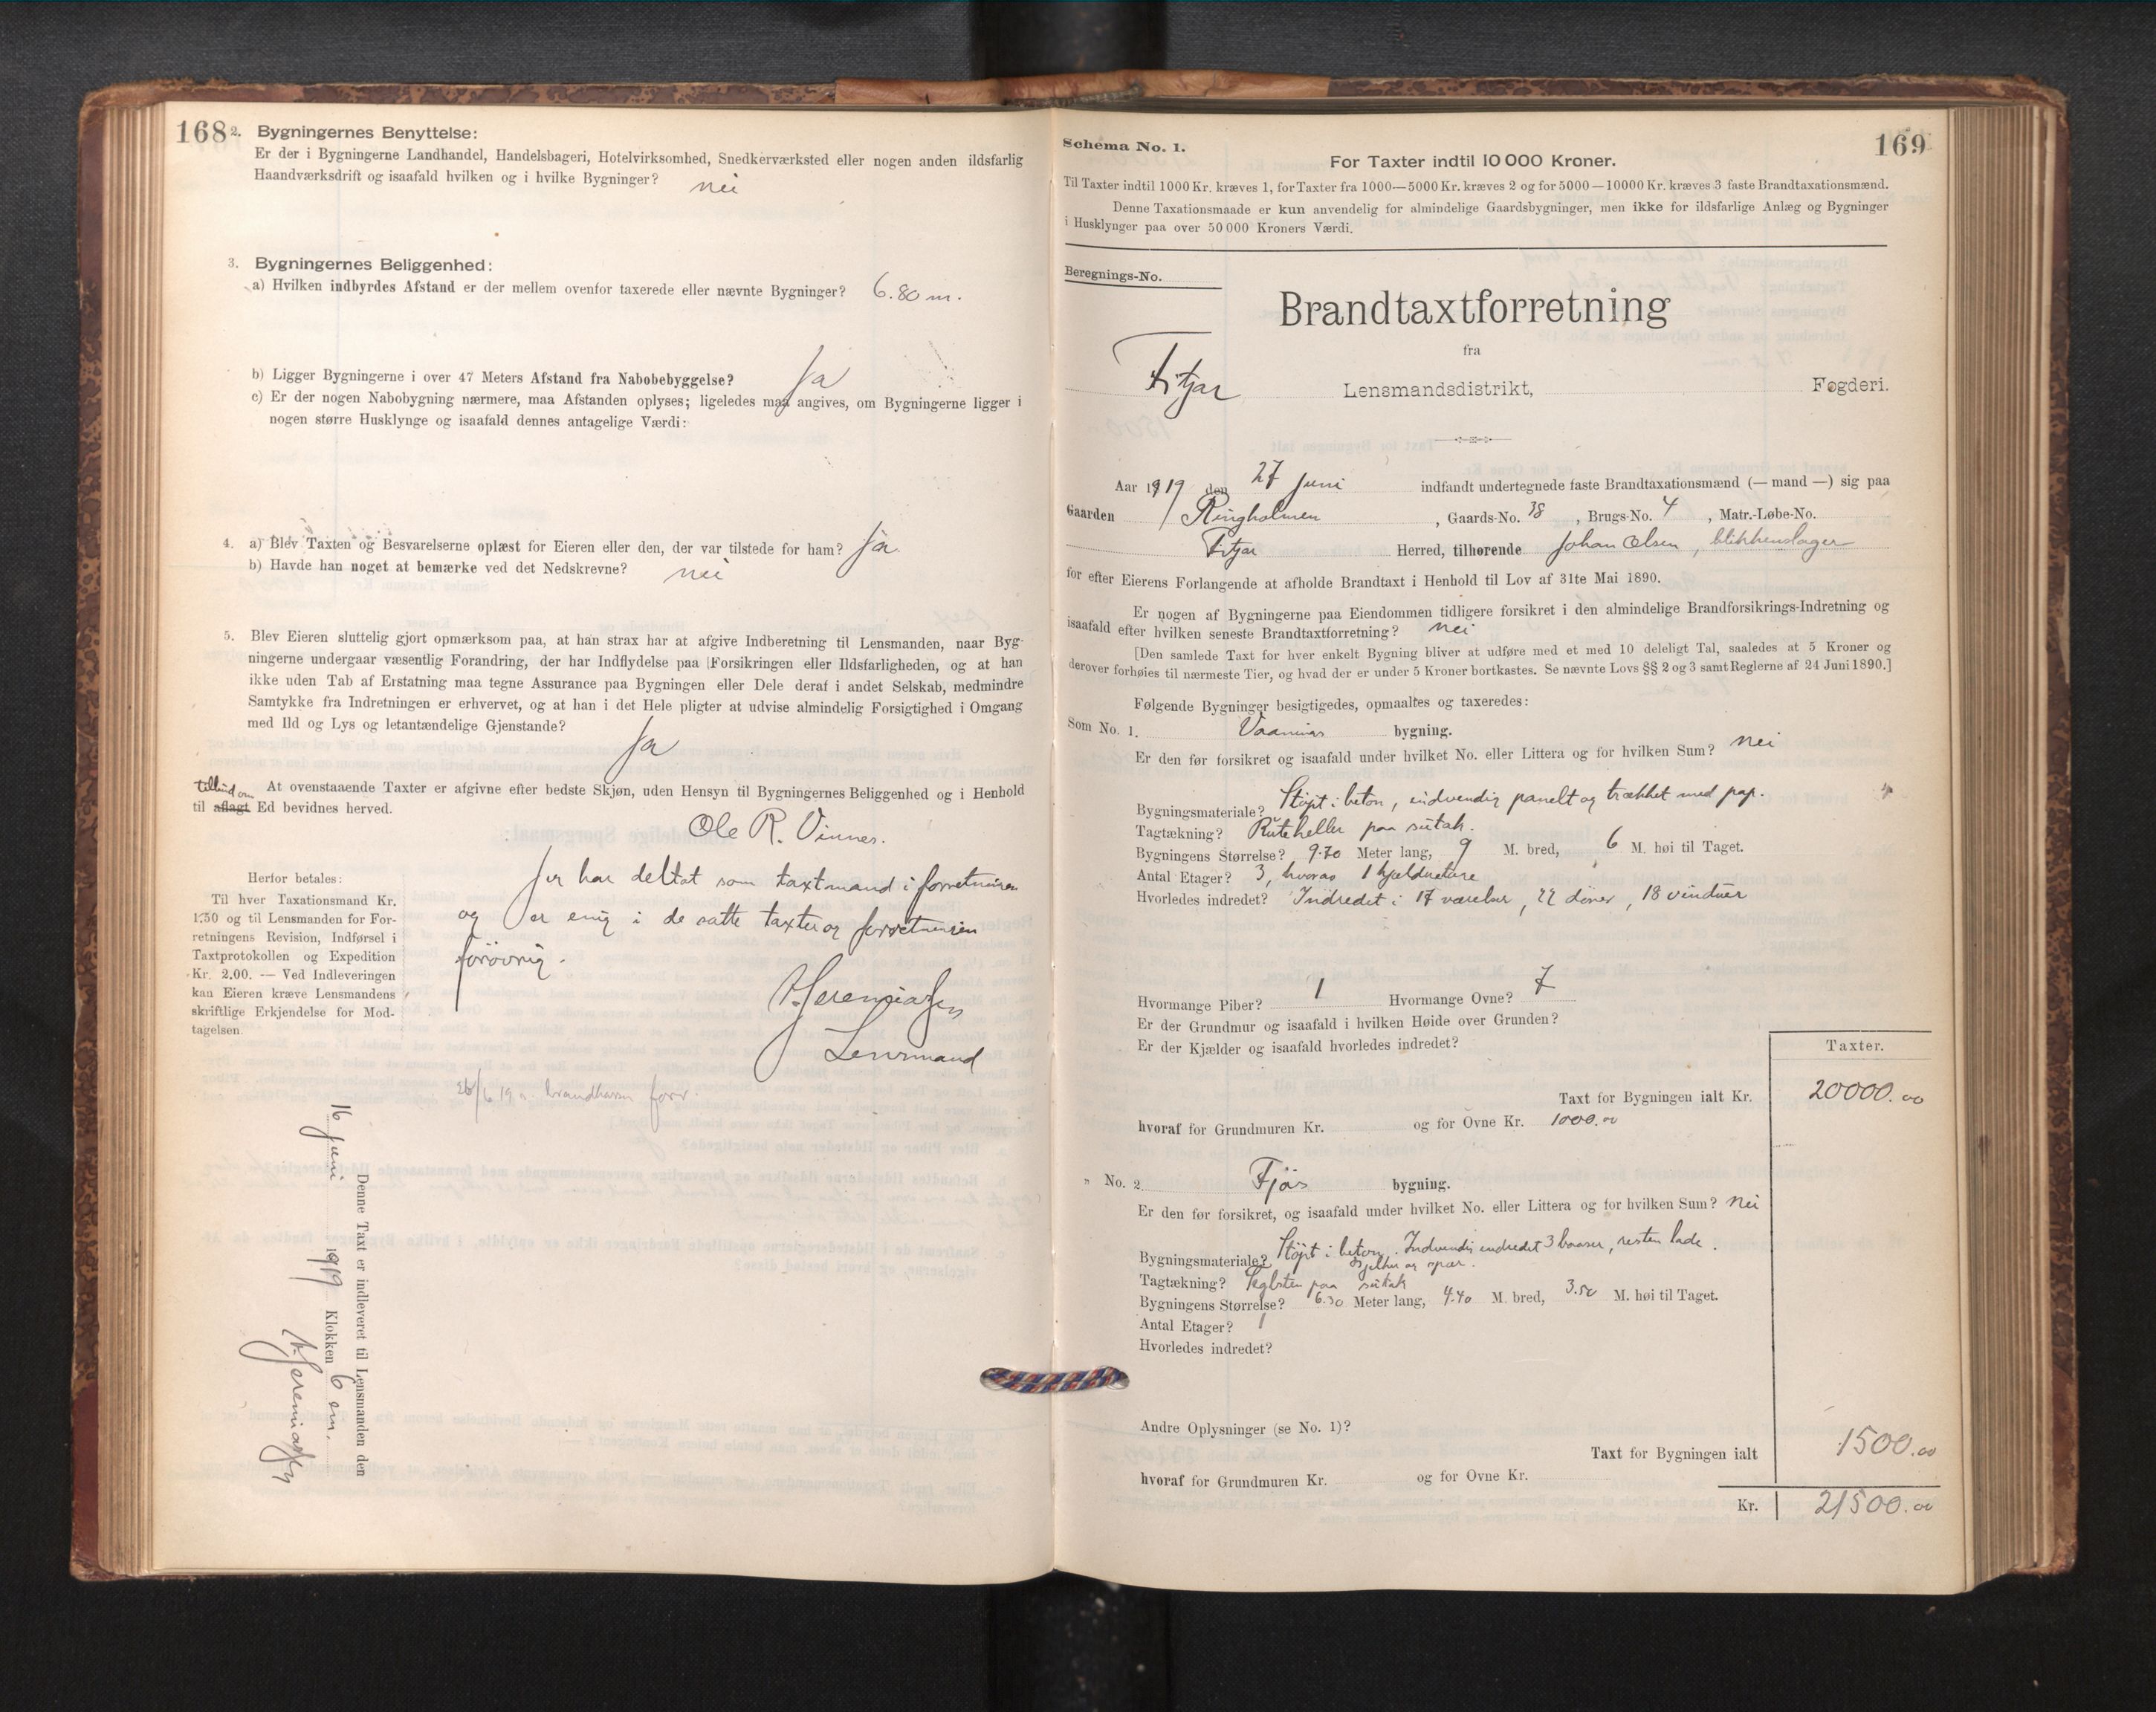 168
2. Bygningernes Benyttelse:
Er der i Bygningerne Landhandel, Handelsbageri, Hotelvirksomhed, Snedkerværksted eller nogen anden ildsfarlig
Haandværksdrift og isaafald hvilken og i hvilke Bygninger? nei
3. Bygningernes Beliggenhed:
a) Hvilken indbyrdes Afstand er der mellem ovenfor taxerede eller nævnte Bygninger? 6.80 m.
b) Ligger Bygningerne i over 47 Meters Afstand fra Nabobebyggelse? Ja
c) Er der nogen Nabobygning nærmere, maa Afstanden oplyses; ligeledes maa angives, om Bygningerne ligger i
nogen større Husklynge og isaafald dennes antagelige Værdi:
4. a) Blev Taxten og Besvarelserne oplæst for Eieren eller den, der var tilstede for ham? Ja.
b) Havde han noget at bemærke ved det Nedskrevne? nei
5. Blev Eieren sluttelig gjort opmærksom paa, at han strax har at afgive Indberetning til Lensmanden, naar Byg-
ningerne undergaar væsentlig Forandring, der har Indflydelse paa Forsikringen eller Ildsfarligheden, og at han
ikke uden Tab af Erstatning maa tegne Assurance paa Bygningen eller Dele deraf i andet Selskab, medmindre
Samtykke fra Indretningen er erhvervet, og at han i det Hele pligter at udvise almindelig Forsigtighed i Omgang
med Ild og Lys og letantændelige Gjenstande? Ja
tilbud om
At ovenstaaende Taxter er afgivne efter bedste Skjøn, uden Hensyn til Bygningernes Beliggenhed og i Henhold
til aflagt Ed bevidnes herved.
Ole R. Vinnes.
Jeg har deltat som taxtmand i forretningen
og er enig i de satte taxter og forretningen
forøvrig.
Lensmand
26/6 19
Herfor betales:
Til hver Taxationsmand Kr.
1.50 og til Lensmanden for For-
retningens Revision, Indførsel i
Taxtprotokollen og Expedition
Kr. 2.00. — Ved Indleveringen
kan Eieren kræve Lensmandens
skriftlige Erkjendelse for Mod-
tagelsen.
Denne Taxt er indleveret til Lensmanden den
16 juni 1919 Klokken 6 em.
169
Schema No. 1.
For Taxter indtil 10 000 Kroner.
Til Taxter indtil 1000 Kr. kræves 1, for Taxter fra 1000—5000 Kr. kræves 2 og for 5000—10000 Kr. kræves 3 faste Brandtaxationsmænd.
Denne Taxationsmaade er kun anvendelig for almindelige Gaardsbygninger, men ikke for ildsfarlige Anlæg og Bygninger
i Husklynger paa over 50 000 Kroners Værdi.
Beregnings-No.
Brandtaxtforretning
fra
Fitjar Lensmandsdistrikt, Fogderi.
Aar 1919 den 27 juni indfandt undertegnede faste Brandtaxationsmænd (— mand —) sig paa
Gaarden Ringholmen, Gaards-No. 38, Brugs-No. 4, Matr.-Løbe-No.
Fitjar Herred, tilhørende Johan Olsen, blikkenslager
for efter Eierens Forlangende at afholde Brandtaxt i Henhold til Lov af 31te Mai 1890.
Er nogen af Bygningerne paa Eiendommen tidligere forsikret i den almindelige Brandforsikrings-Indretning og
isaafald efter hvilken seneste Brandtaxtforretning? nei
[Den samlede Taxt for hver enkelt Bygning bliver at udføre med et med 10 deleligt Tal, saaledes at 5 Kroner og
derover forhøies til nærmeste Tier, og hvad der er under 5 Kroner bortkastes. Se nævnte Lovs §§ 2 og 3 samt Reglerne af 24 Juni 1890.]
Følgende Bygninger besigtigedes, opmaaltes og taxeredes:
Som No. 1. Vaanings bygning.
Er den før forsikret og isaafald under hvilket No. eller Littera og for hvilken Sum? nei
Bygningsmateriale? Støpt i beton, indvendig panelt og trækket med pap.
Tagtækning? Ruteheller paa sutak.
Bygningens Størrelse? 9.70 Meter lang, 9 M. bred, 6 M. høi til Taget.
Antal Etager? 3, hvorav 1 kjelderetage
Hvorledes indredet? Indredet i 17 værelser, 22 dører, 18 vinduer
Hvormange Piber? 1 Hvormange Ovne? 7
Er der Grundmur og isaafald i hvilken Høide over Grunden?
Er der Kjælder og isaafald hvorledes indredet?
Taxter.
Taxt for Bygningen ialt Kr. 20000.00
hvoraf for Grundmuren Kr. og for Ovne Kr. 1000.00
" No. 2. Fjøs bygning.
Er den før forsikret, og isaafald under hvilket No. eller Littera og for hvilken Sum? nei
Bygningsmateriale? Støpt i beton. Indvendig indredet 3 baaser, resten lade.
Tagtækning? Teglsten paa sutak
Bygningens Størrelse? 6.30 Meter lang, 4.40 M. bred, 3.50 M. høi til Taget.
Antal Etager? 1
Hvorledes indredet?
Andre Oplysninger (se No. 1)?
Taxt for Bygningen ialt 1500.00
hvoraf for Grundmuren Kr. og for Ovne Kr.
Kr. 21500.00